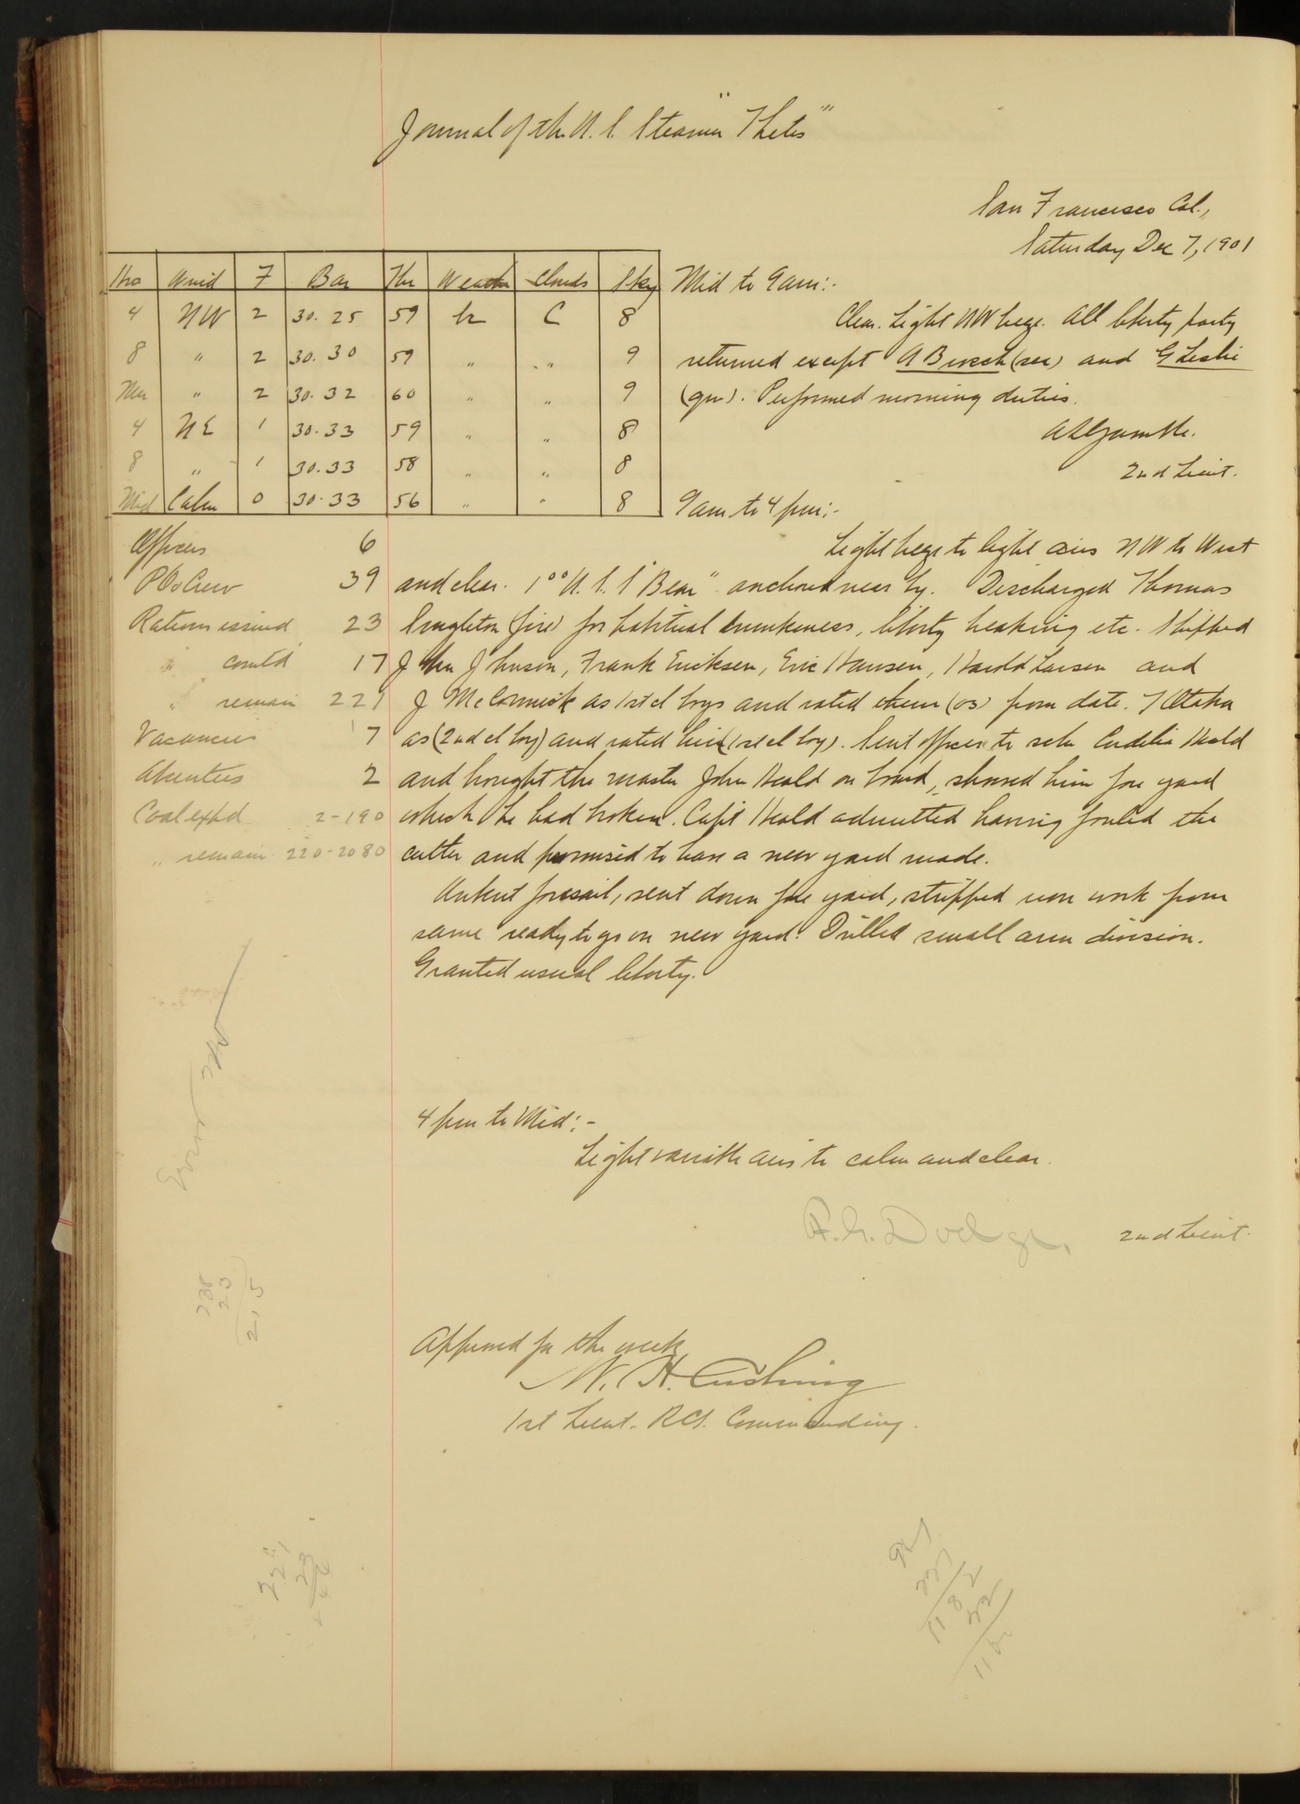 Journal of the U.S. Steamer "Thetis"
San Francisco Cal.,
Saturday Dec 7, 1901
Hrs Wind F Bar Thr Weather Clouds Sky
4 NW 2 30.25 59 bc C 8
8 " 2 30.30 59 " " 9
Mer " 2 30.32 60 " " 9
4 NE 1 30.33 59 " " 8
8 " 1 30.33 58 " " 8
Mid Calm 0 30.33 56 " " 8
Mid to 9 am:-
Clear. Light NW breeze. All liberty party
returned except A (sea) and G Leslie
(qm). Performed morning duties.
2nd Lieut.
9 am to 4 pm:-
Officers 6
POs Crew 39
Rations issued 23
" comtd 17
" remain 221
Vacancies 7
Absentees 2
Coal expd 2-190
" remain 220-2080
Light breeze to light airs NW to West
and clear. 1°° U.S.S "Bear" anchored near by. Discharged Thomas
Singleton (fire) for habitual drunkeness, liberty breaking etc. Shipped
John Johnson, Frank Ericksen, Eric Hansen, Harold Larsen and
J McCormick as 1st cl boys and rated them (os) from date. T Otaka
as (2nd cl boy) and rated him (1st cl boy). Sent officer to schr Heald
and brought the master John Heald on board, showed him fore yard
which he had broken. Capt Heald admitted having fouled the
cutter and promised to have a new yard made.
Unbent foresail, sent down fore yard, stripped iron work from
same ready to go on new yard. Drilled small arm division.
Granted usual liberty.
4 pm to Mid:-
Light variable airs to calm and clear.
F.G. Dodge, 2nd Lieut.
Approved for the week
W. H. Cushing
1st Lieut. RCS. Commanding.
238
23
215
221
23